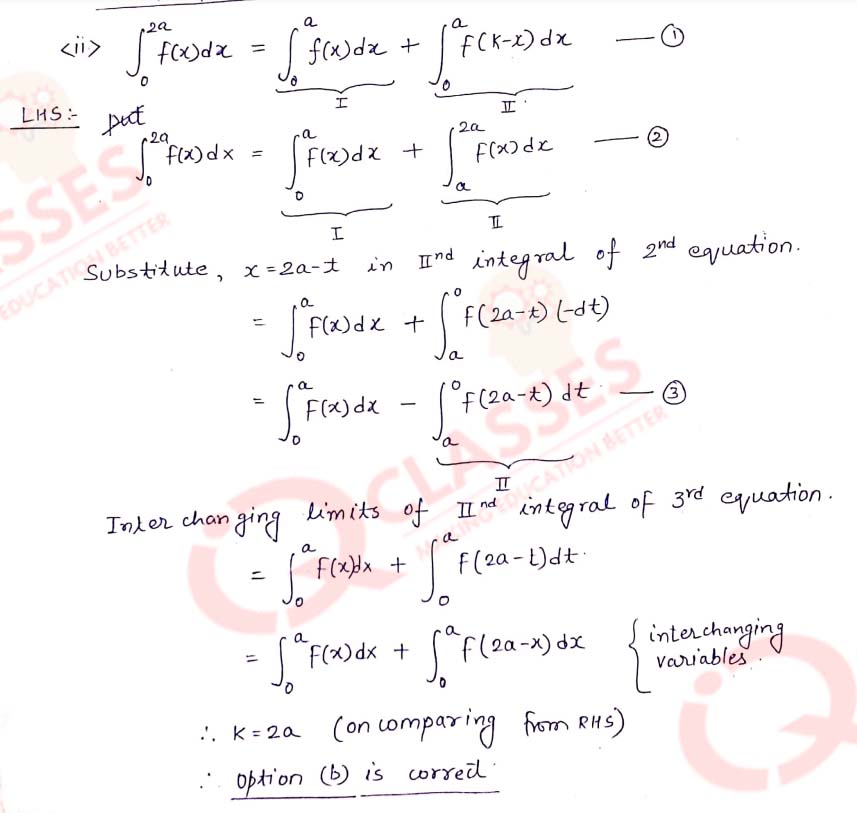 <ii> ∫₀²ᵃ f(x)dx = ∫₀ᵃ f(x)dx + ∫₀ᵃ F(K-x)dx — ①
I II
LHS:- put
∫₀²ᵃ f(x)dx = ∫₀ᵃ F(x)dx + ∫ₐ²ᵃ F(x)dx — ②
I II
Substitute, x=2a-t in IInd integral of 2nd equation.
= ∫₀ᵃ F(x)dx + ∫ₐ⁰ F(2a-t)(-dt)
= ∫₀ᵃ F(x)dx - ∫ₐ⁰ F(2a-t)dt — ③
II
Inter changing limits of IInd integral of 3rd equation.
= ∫₀ᵃ F(x)dx + ∫₀ᵃ F(2a-t)dt.
= ∫₀ᵃ F(x)dx + ∫₀ᵃ F(2a-x)dx { interchanging
variables.
∴ K=2a (on comparing from RHS)
∴ option (b) is correct.
SSES
EDUCATION BETTER
CLASSES
MAKING EDUCATION BETTER